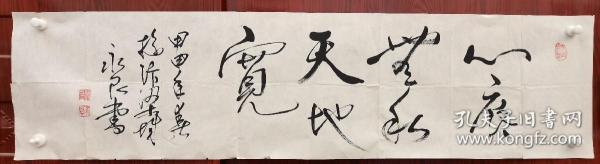 心底
無私
天地
寬
甲申年春
永
書
孔夫子旧书网
www.kongfz.com